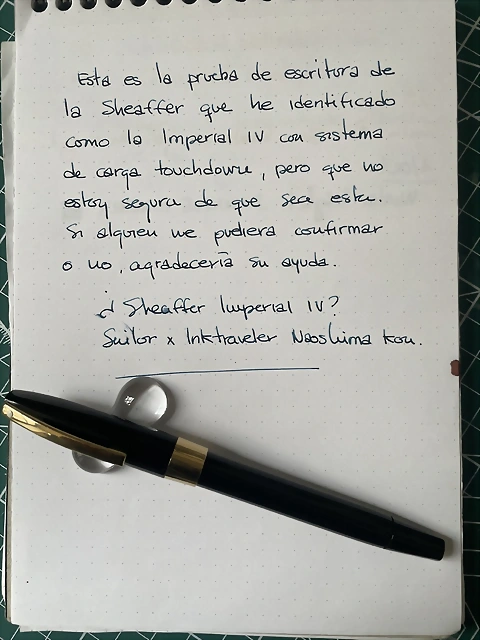 Esta es la prueba de escritura de
la Sheaffer que he identificado
como la Imperial IV con sistema
de carga touchdown, pero que no
estoy segura de que sea esta.
Si alguien me pudiera confirmar
o no, agradecería su ayuda.
¿Sheaffer Imperial IV?
Sailor x Inktraveler Naoshima Kou.